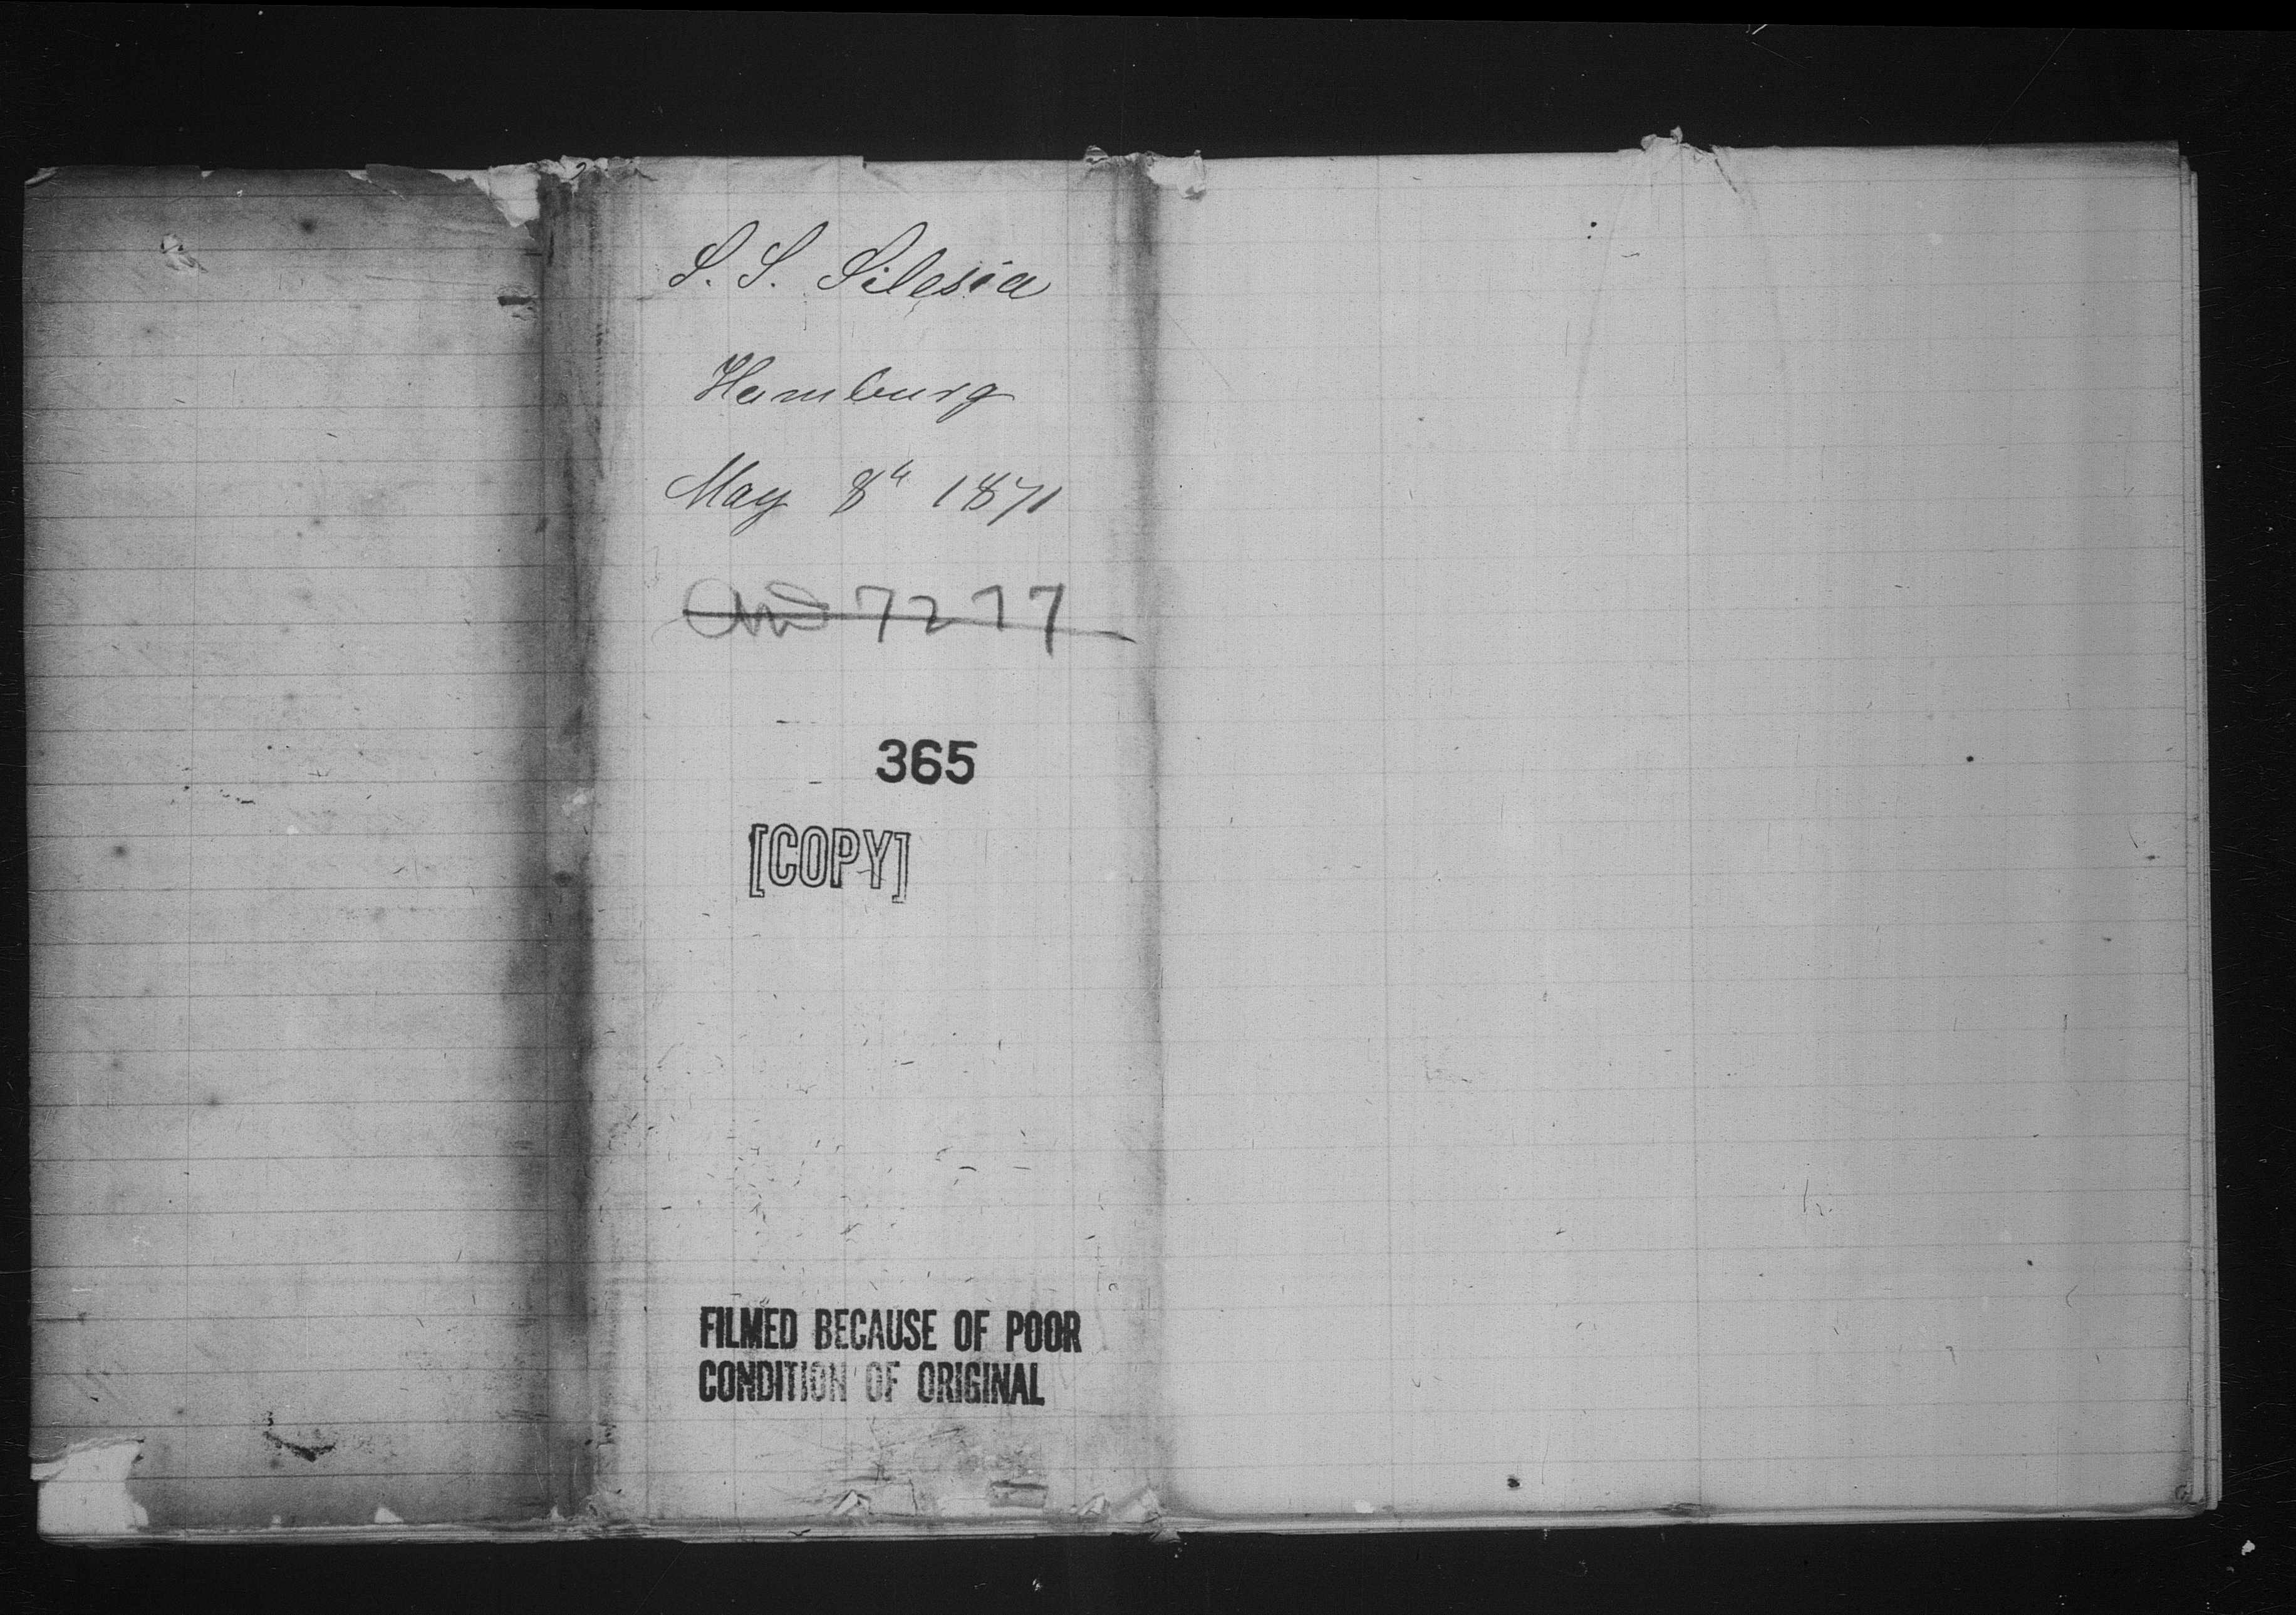 S. S. Silesia
Hamburg
May 8th 1871
7277
365
[COPY]
FILMED BECAUSE OF POOR
CONDITION OF ORIGINAL